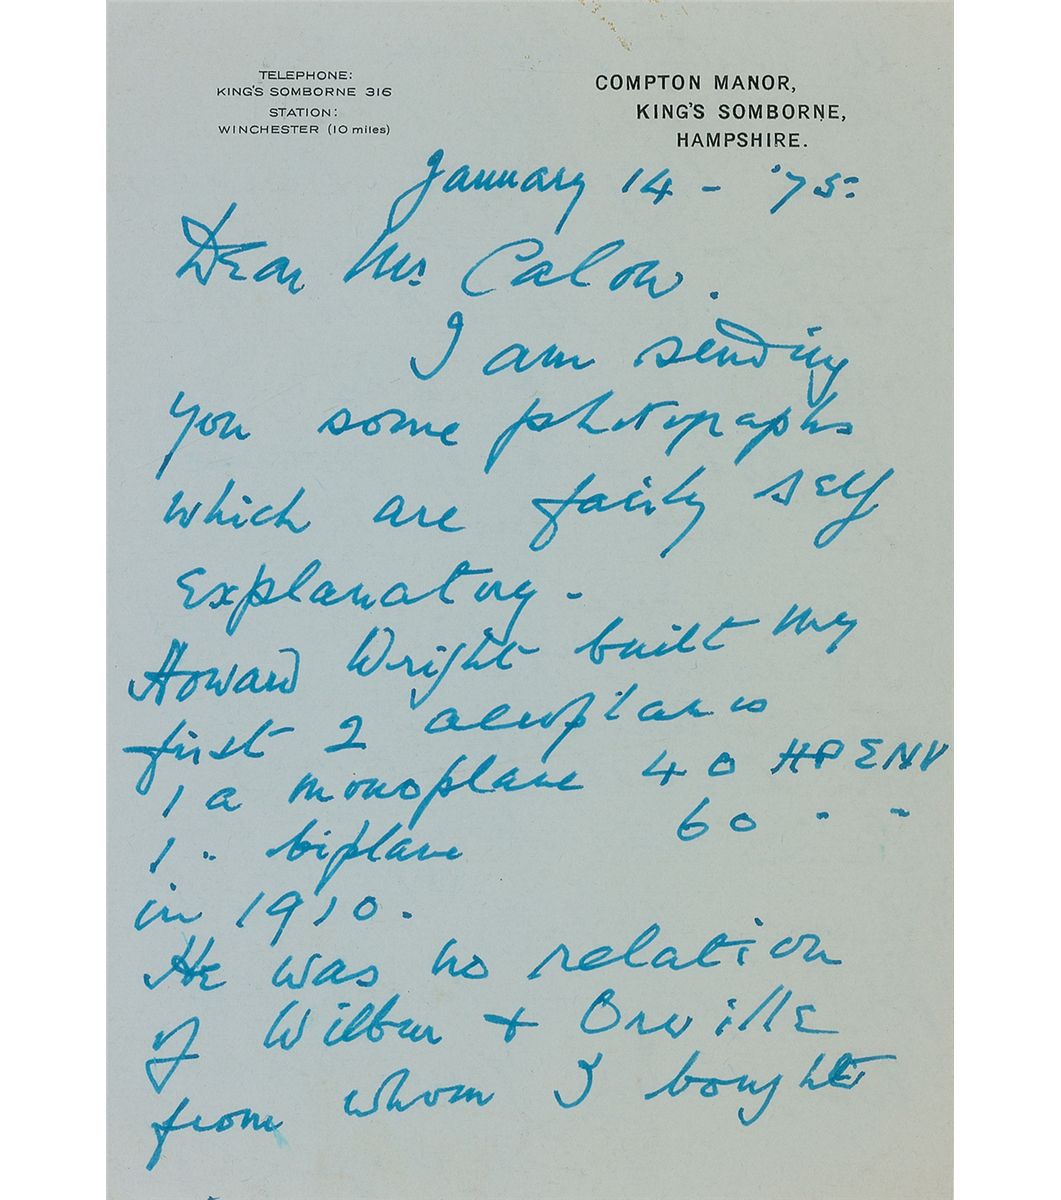 TELEPHONE:
KING'S SOMBORNE 316
STATION:
WINCHESTER (10 miles)
COMPTON MANOR,
KING'S SOMBORNE,
HAMPSHIRE.
January 14 - '75.
Dear Mr. Calow.
I am sending
you some photographs
which are fairly self
explanatory -
Howard Wright built my
first 2 aeroplanes
1 a monoplane 40 HP ENV
1 " biplane 60 " "
in 1910.
He was no relation
of Wilbur + Orville
from whom I bought